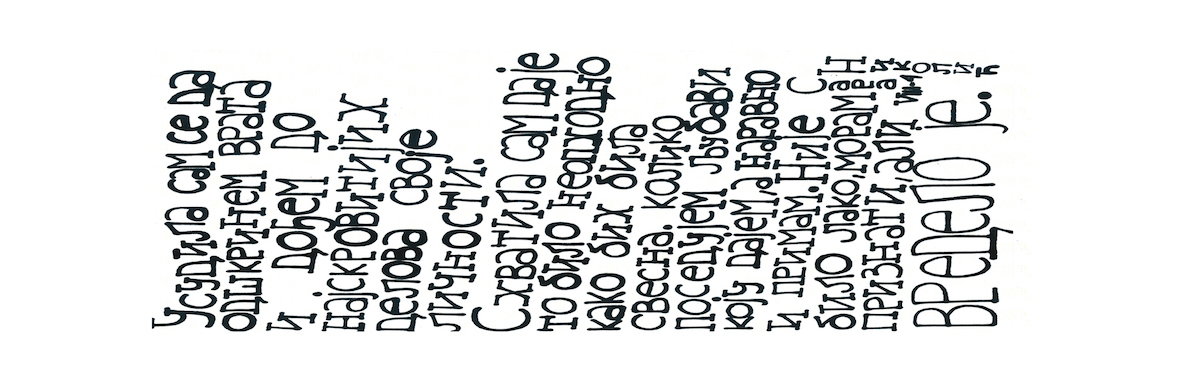 Усудила сам се да
одшкринем врата
и дођем до
најскровитијих
делова своје
личности.
Схватила сам да је
то било неопходно
како бих била
свесна. колико
поседујем љубави
коју дајем, а наравно
и примам. Није
било лако морам
признати, али
вредело је.